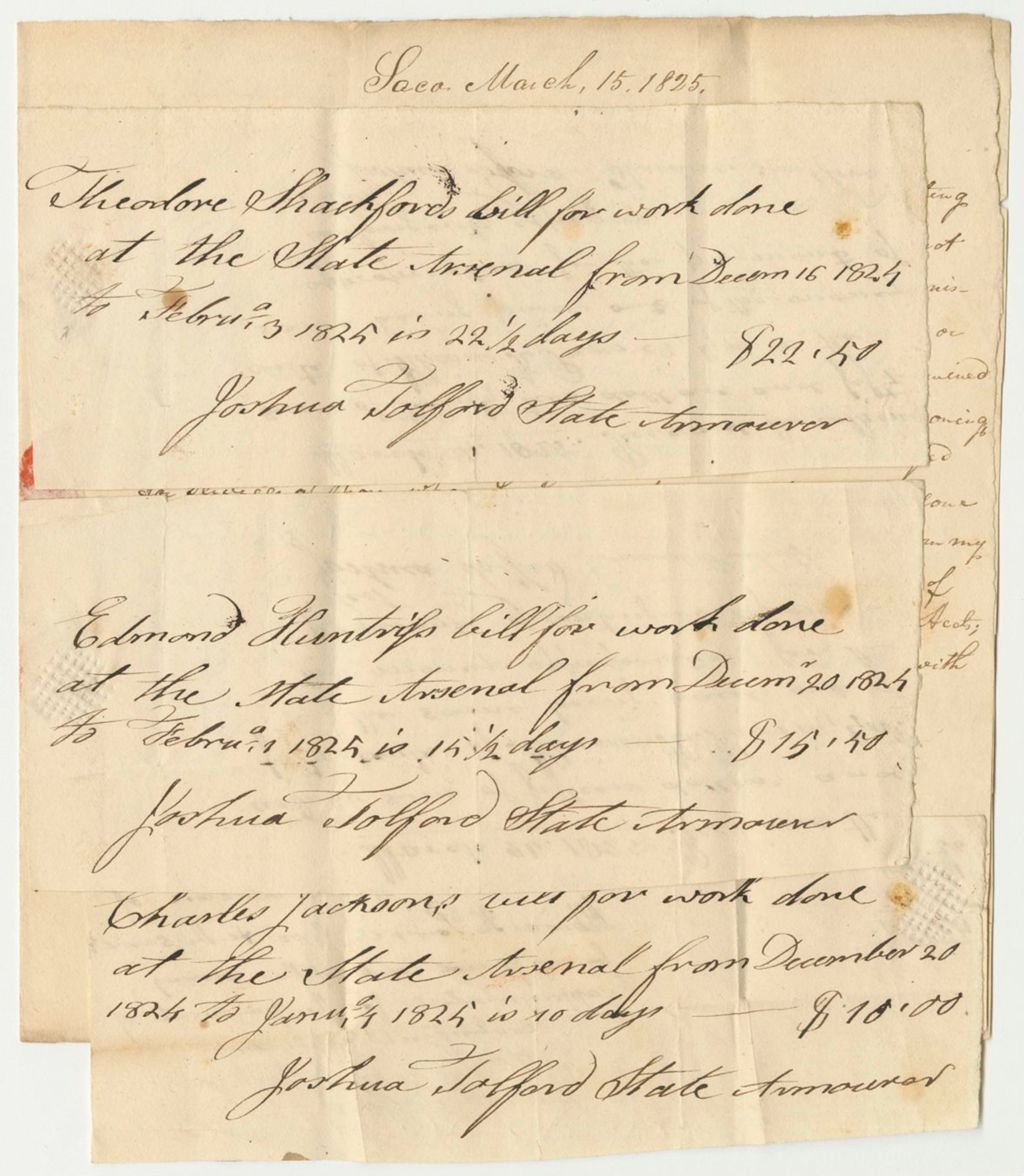 Saco March, 15. 1825.
Theodore Shackfords bill for work done
at the State Arsenal from Decem 16 1824
to Februa. 3 1825 is 22 1/2 days — $22.50
Joshua Tolford State Armourer
Edmond Huntriss bill for work done
at the State Arsenal from Decemr 20 1824
to Februa. 1 1825 is 15 1/2 days — $15.50
Joshua Tolford State Armourer
Charles Jacksons bill for work done
at the State Arsenal from December 20
1824 to Janua. 4 1825 is 10 days — $10.00
Joshua Tolford State Armourer
ting
not
nis-
or
oning
ed
my
of
Accts;
with